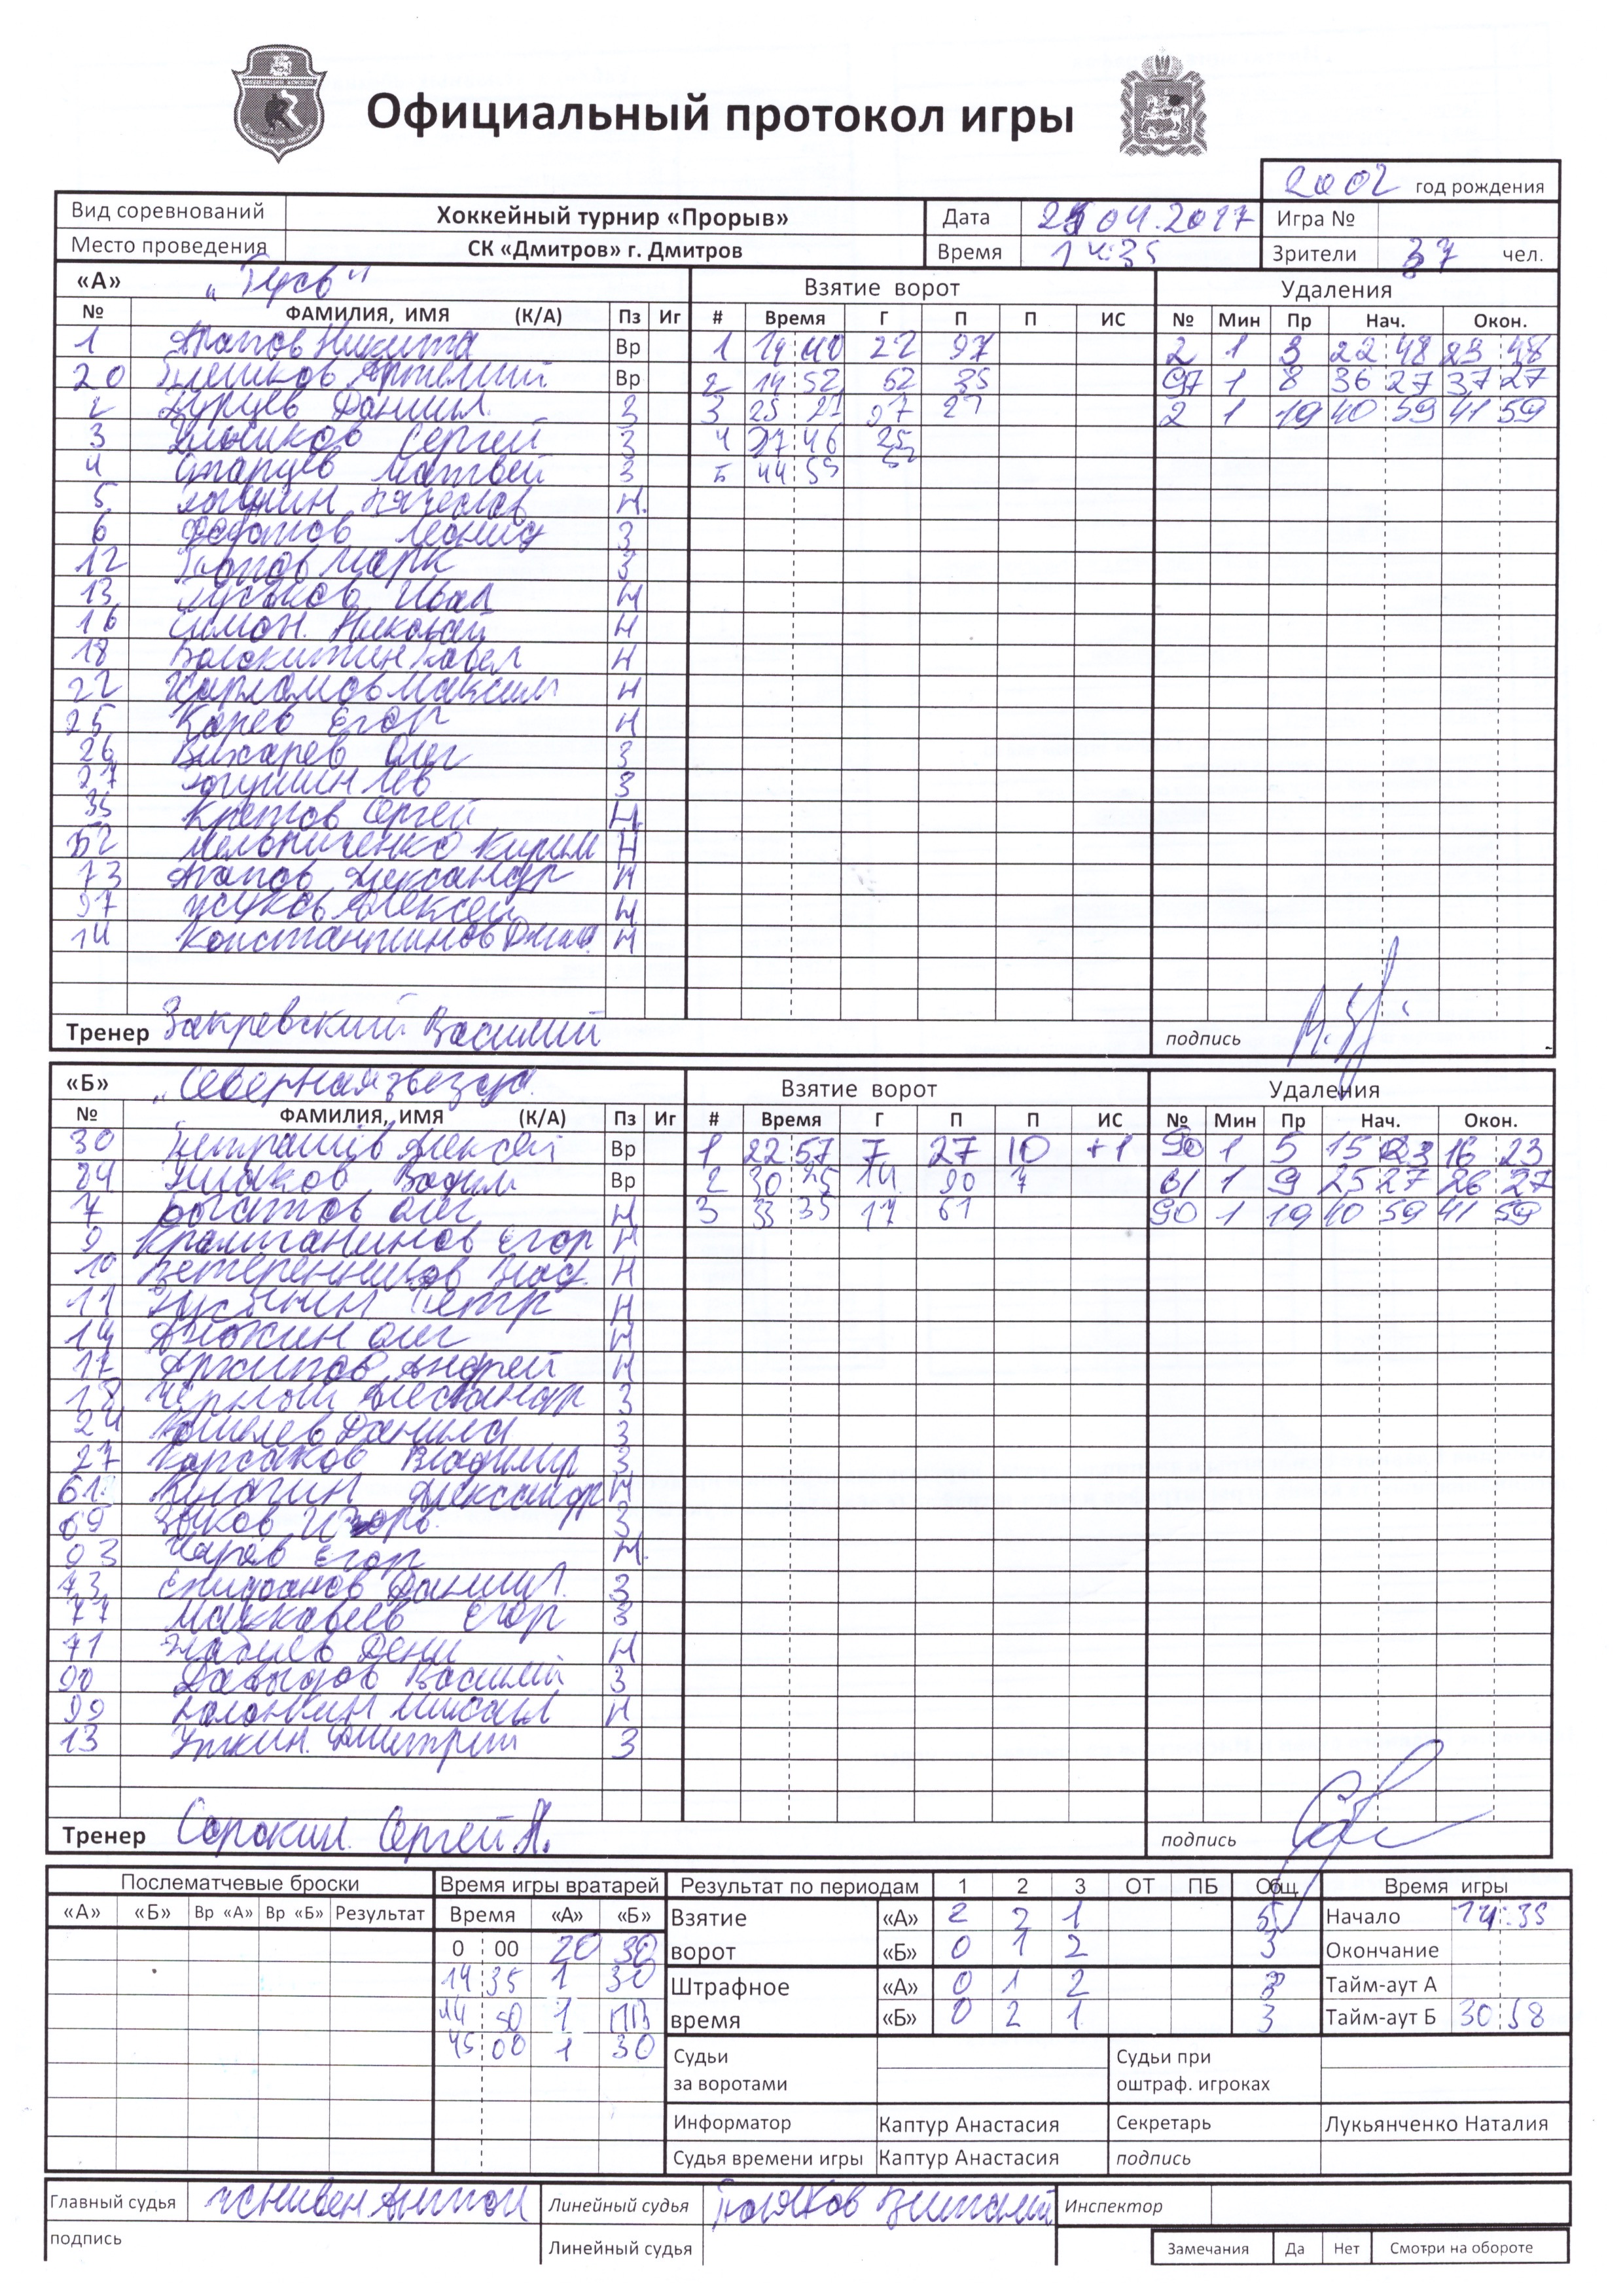 Официальный протокол игры
2002 год рождения
Вид соревнований Хоккейный турнир «Прорыв» Дата 04.2017 Игра №
Место проведения СК «Дмитров» г. Дмитров Время 14:35 Зрители 37 чел.
«А» Взятие ворот Удаления
№ ФАМИЛИЯ, ИМЯ (К/А) Пз Иг # Время Г П П ИС № Мин Пр Нач. Окон.
1 Агапов Никита Вр 1 14 40 22 97 2 1 3 22 48 23 48
20 Артемий Вр 2 14 52 62 35 97 1 8 36 27 37 27
2 Даниил З 3 25 27 97 27 2 1 19 40 59 41 59
3 Сергей З 4 37 46 25
4 Старцев Матвей З 5 44 53
5 Вячеслав Н
6 Федотов Леонид З
12 Попов Марк З
13 Гуськов Иван Н
16 Николай Н
18 Павел Н
22 Харламов Максим Н
25 Карев Егор Н
26 Вихарев Олег З
27 Лев З
35 Кретов Сергей Н
52 Мельниченко Кирилл Н
73 Агапов Александр Н
97 Жуков Алексей Н
14 Константинов Н
Тренер Закревский Василий подпись
«Б» „Северная звезда Взятие ворот Удаления
№ ФАМИЛИЯ, ИМЯ (К/А) Пз Иг # Время Г П П ИС № Мин Пр Нач. Окон.
30 Алексей Вр 1 22 57 7 27 10 +1 90 1 5 15 23 16 23
84 Ушаков Вадим Вр 2 30 14 90 7 61 1 9 25 27 26 27
7 Богатов Олег Н 3 33 35 17 61 90 1 19 40 59 41 59
9 Егор Н
10 Влад. Н
11 Петр Н
14 Анохин Олег Н
17 Архипов Андрей Н
18 Черный Александр З
24 Кошелев Данила З
27 Корсаков Владимир З
61 Кулагин Александр Н
69 Зыков Игорь З
93 Егор Н
73 Епифанов Даниил З
77 Маккавеев Егор З
71 Н
90 Давыдов Василий З
99 Михаил Н
13 Уткин Дмитрий З
Тренер Сорокин Сергей А. подпись
Послематчевые броски Время игры вратарей Результат по периодам 1 2 3 ОТ ПБ Общ Время игры
«А» «Б» Вр «А» Вр «Б» Результат Время «А» «Б» Взятие «А» 2 2 1 5 Начало 14:35
0 00 20 30 ворот «Б» 0 1 2 3 Окончание
14 35 1 30 Штрафное «А» 0 1 2 3 Тайм-аут А
44 50 1 ПВ время «Б» 0 2 1 3 Тайм-аут Б 30 58
45 00 1 30 Судьи Судьи при
за воротами оштраф. игроках
Информатор Каптур Анастасия Секретарь Лукьянченко Наталия
Судья времени игры Каптур Анастасия подпись
Главный судья Антон Линейный судья Виталий Инспектор
подпись Линейный судья Замечания Да Нет Смотри на обороте